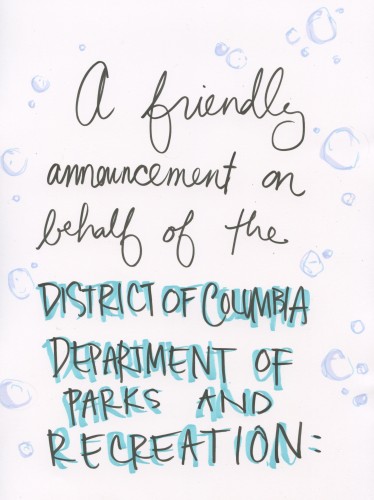 A friendly
announcement on
behalf of the
DISTRICT OF COLUMBIA
DEPARTMENT OF
PARKS AND
RECREATION: